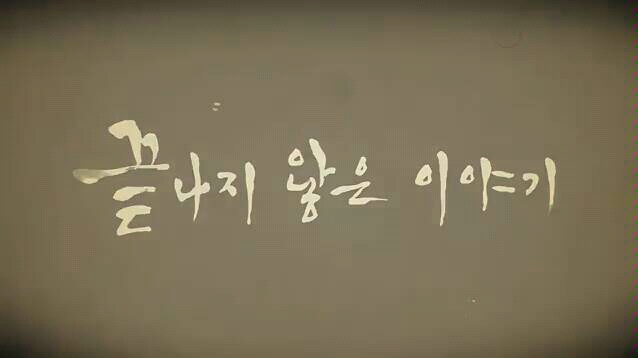 끝나지 않은 이야기